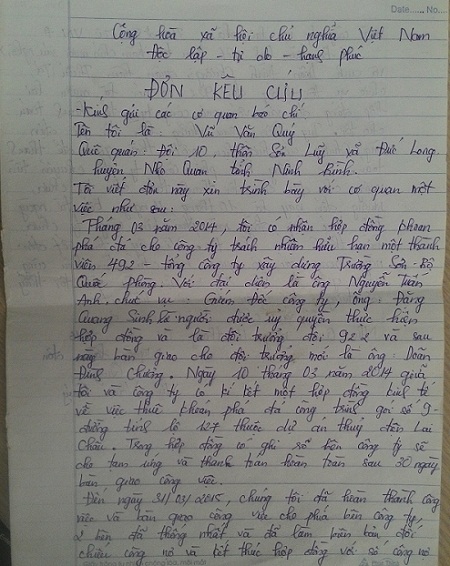 Date...... No....
Cộng hòa xã hội chủ nghĩa Việt Nam
Độc lập - tự do - hạnh phúc
ĐƠN KÊU CỨU
- Kính gửi các cơ quan báo chí
Tên tôi là: Vũ Văn Quý
Quê quán: Đội 10, thôn Sơn Luỹ xã Đức Long
huyện Nho Quan tỉnh Ninh Bình.
Tôi viết đơn này xin trình bày với cơ quan một
việc như sau:
Tháng 03 năm 2014, tôi có nhận hợp đồng khoan
phá đá cho công ty trách nhiệm hữu hạn một thành
viên 492 - tổng công ty xây dựng Trường Sơn - Bộ
Quốc phòng. Với đại diện là ông Nguyễn Tuấn
Anh, chức vụ: Giám Đốc công ty, ông: Đặng
Quang Sinh là người được uỷ quyền thực hiện
hợp đồng và là đội trưởng đội 922 và sau
này bàn giao cho đội trưởng mới là ông: Doãn
Đình Chương. Ngày 10 tháng 03 năm 2014 giữa
tôi và công ty có kí kết một hợp đồng kinh tế
về việc thuê khoan phá đá công trình gói số 9
đường tỉnh lộ 127 thuộc dự án thuỷ điện Lai
Châu. Trong hợp đồng có ghi số bên công ty sẽ
cho tạm ứng và thanh toán hoàn toàn sau 30 ngày
bàn giao công việc.
Đến ngày 31/03/2015, chúng tôi đã hoàn thành công
việc và bàn giao công việc cho phía bên công ty,
2 bên đã thống nhất và đã làm biên bản đối
chiếu công nợ và kết thúc hợp đồng với số công nợ